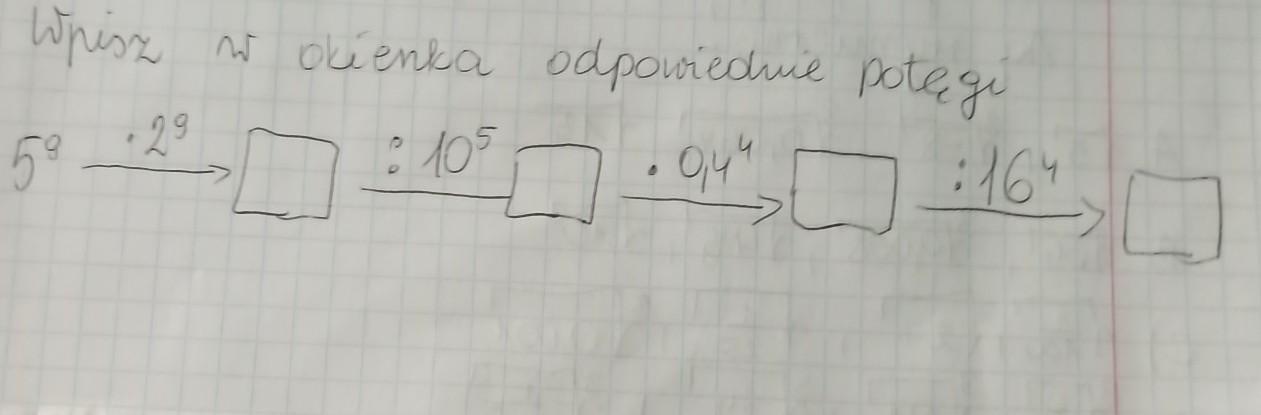 Wpisz w okienka odpowiednie potęgi
5⁹ · 2⁹ : 10⁵ · 0,4⁴ : 16⁴